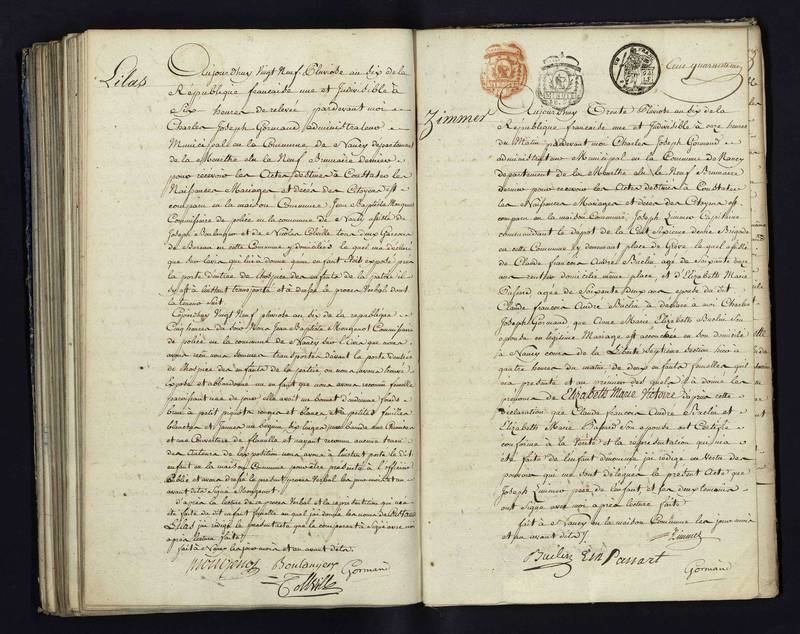 Lilas
Aujourdhuy Vingt Neuf Pluviose an Six de la
République francaise une et Indivisible à
Six heures de relevé pardevant moi
Charles Joseph Gormand administrateur
Municipal en la Commune de Nancy département
de la Meurthe elu le Neuf Brumaire dernier
pour recevoir les Actes destinés à Constater les
Naissances Mariages et décès des Citoyens est
comparu en la maison Commune Jean Baptiste Mougenot
Commissaire de police en la commune de Nancy assisté de
Joseph Boulanger et de Nicolas Colville tous deux Garcons
de Bureau en cette Commune y domiciliés le quel m'a déclaré
que sur l'avis qui lui a donné qu'un enfant etoit exposé près
la porte d'entrée de l'hospice des enfants de la patrie il
s'y est à l'instant transporté et a dressé le proces Verbal dont
la teneur suit
Cejourdhuy Vingt Neuf pluviose an Six de la republique
Cinq heures du soir Nous Jean Baptiste Mougenot Commissaire
de police en la commune de Nancy sur l'avis que nous
avons recu nous sommes transportés devant la porte d'entrée
de l'hospice des enfants de la patrie, ou nous avons trouvé
Exposé et abandonné un enfant que nous avons reconnu femelle
paraissant née de jour elle avoit un bonnet d'indienne fond
brun à petit piquets rouges et blancs, et à petites feuilles
blanches et jaunes un beguin, six langes, une bande une Chemise
et une Couverture de flanelle et n'ayant reconnu aucune trace
des auteurs de l'exposition nous avons à l'instant porté le dit
enfant en la maison Commune pour être présenté à l'officier
Public et avons dressé le present proces Verbal les jour mois et an
avant dits Signé Mougenot
d'après la lecture de ce proces Verbal et la représentation qui m'a
été faite du dit enfant femelle au quel j'ai donné les noms de
Lilas j'ai rédigé le present acte que le comparant a signé avec moi
après lecture faite
fait à Nancy les jour mois et an avant dits
Mougenot Boulanger
Colville Gormand
Zimmer
Aujourdhuy Trente Pluviose an Six de la
République francaise une et Indivisible à onze heures
du Matin pardevant moi Charles Joseph Gormand
administrateur Municipal en la Commune de Nancy
département de la Meurthe elu le Neuf Brumaire
dernier pour recevoir les Actes destinés à Constater
les Naissances Mariages et décès des Citoyens est
comparu en la maison Commune, Joseph Zimmer Capitaine
commandant le depot de la Cent Sixieme demie Brigade
en cette Commune y demeurant place de Grève le quel assisté
de Claude francois André Buclin agé de Soixante
ans rentier domicilié même place et d'Elizabeth Marie
Passard agée de Soixante deux ans epouse du dit
Claude francois André Buclin a declaré à moi Charles
Joseph Gormand que Anne Marie Elizabeth Buclin son
epouse en legitime Mariage est accouchée en son domicile
à Nancy cours de la Liberté Septieme Section hier à
quatre heures du matin de deux enfants femelles qu'il
m'a présenté et au premier des quels il a donné les
prenoms de Elizabeth Marie Victoire d'après cette
déclaration que Claude francois André Buclin et
Elizabeth Marie Passard son epouse ont Certifié
conforme à la Vérité et la représentation qui m'a
été faite de l'enfant denommé j'ai rédigé en Vertu des
pouvoirs qui me sont délégués le présent Acte que
Joseph Zimmer père de l'enfant et les deux temoins
ont Signé avec moi après lecture faite
fait à Nancy en la maison Commune les jour mois
et an avant dits
Zimmer
Buclin Passart
Gormand